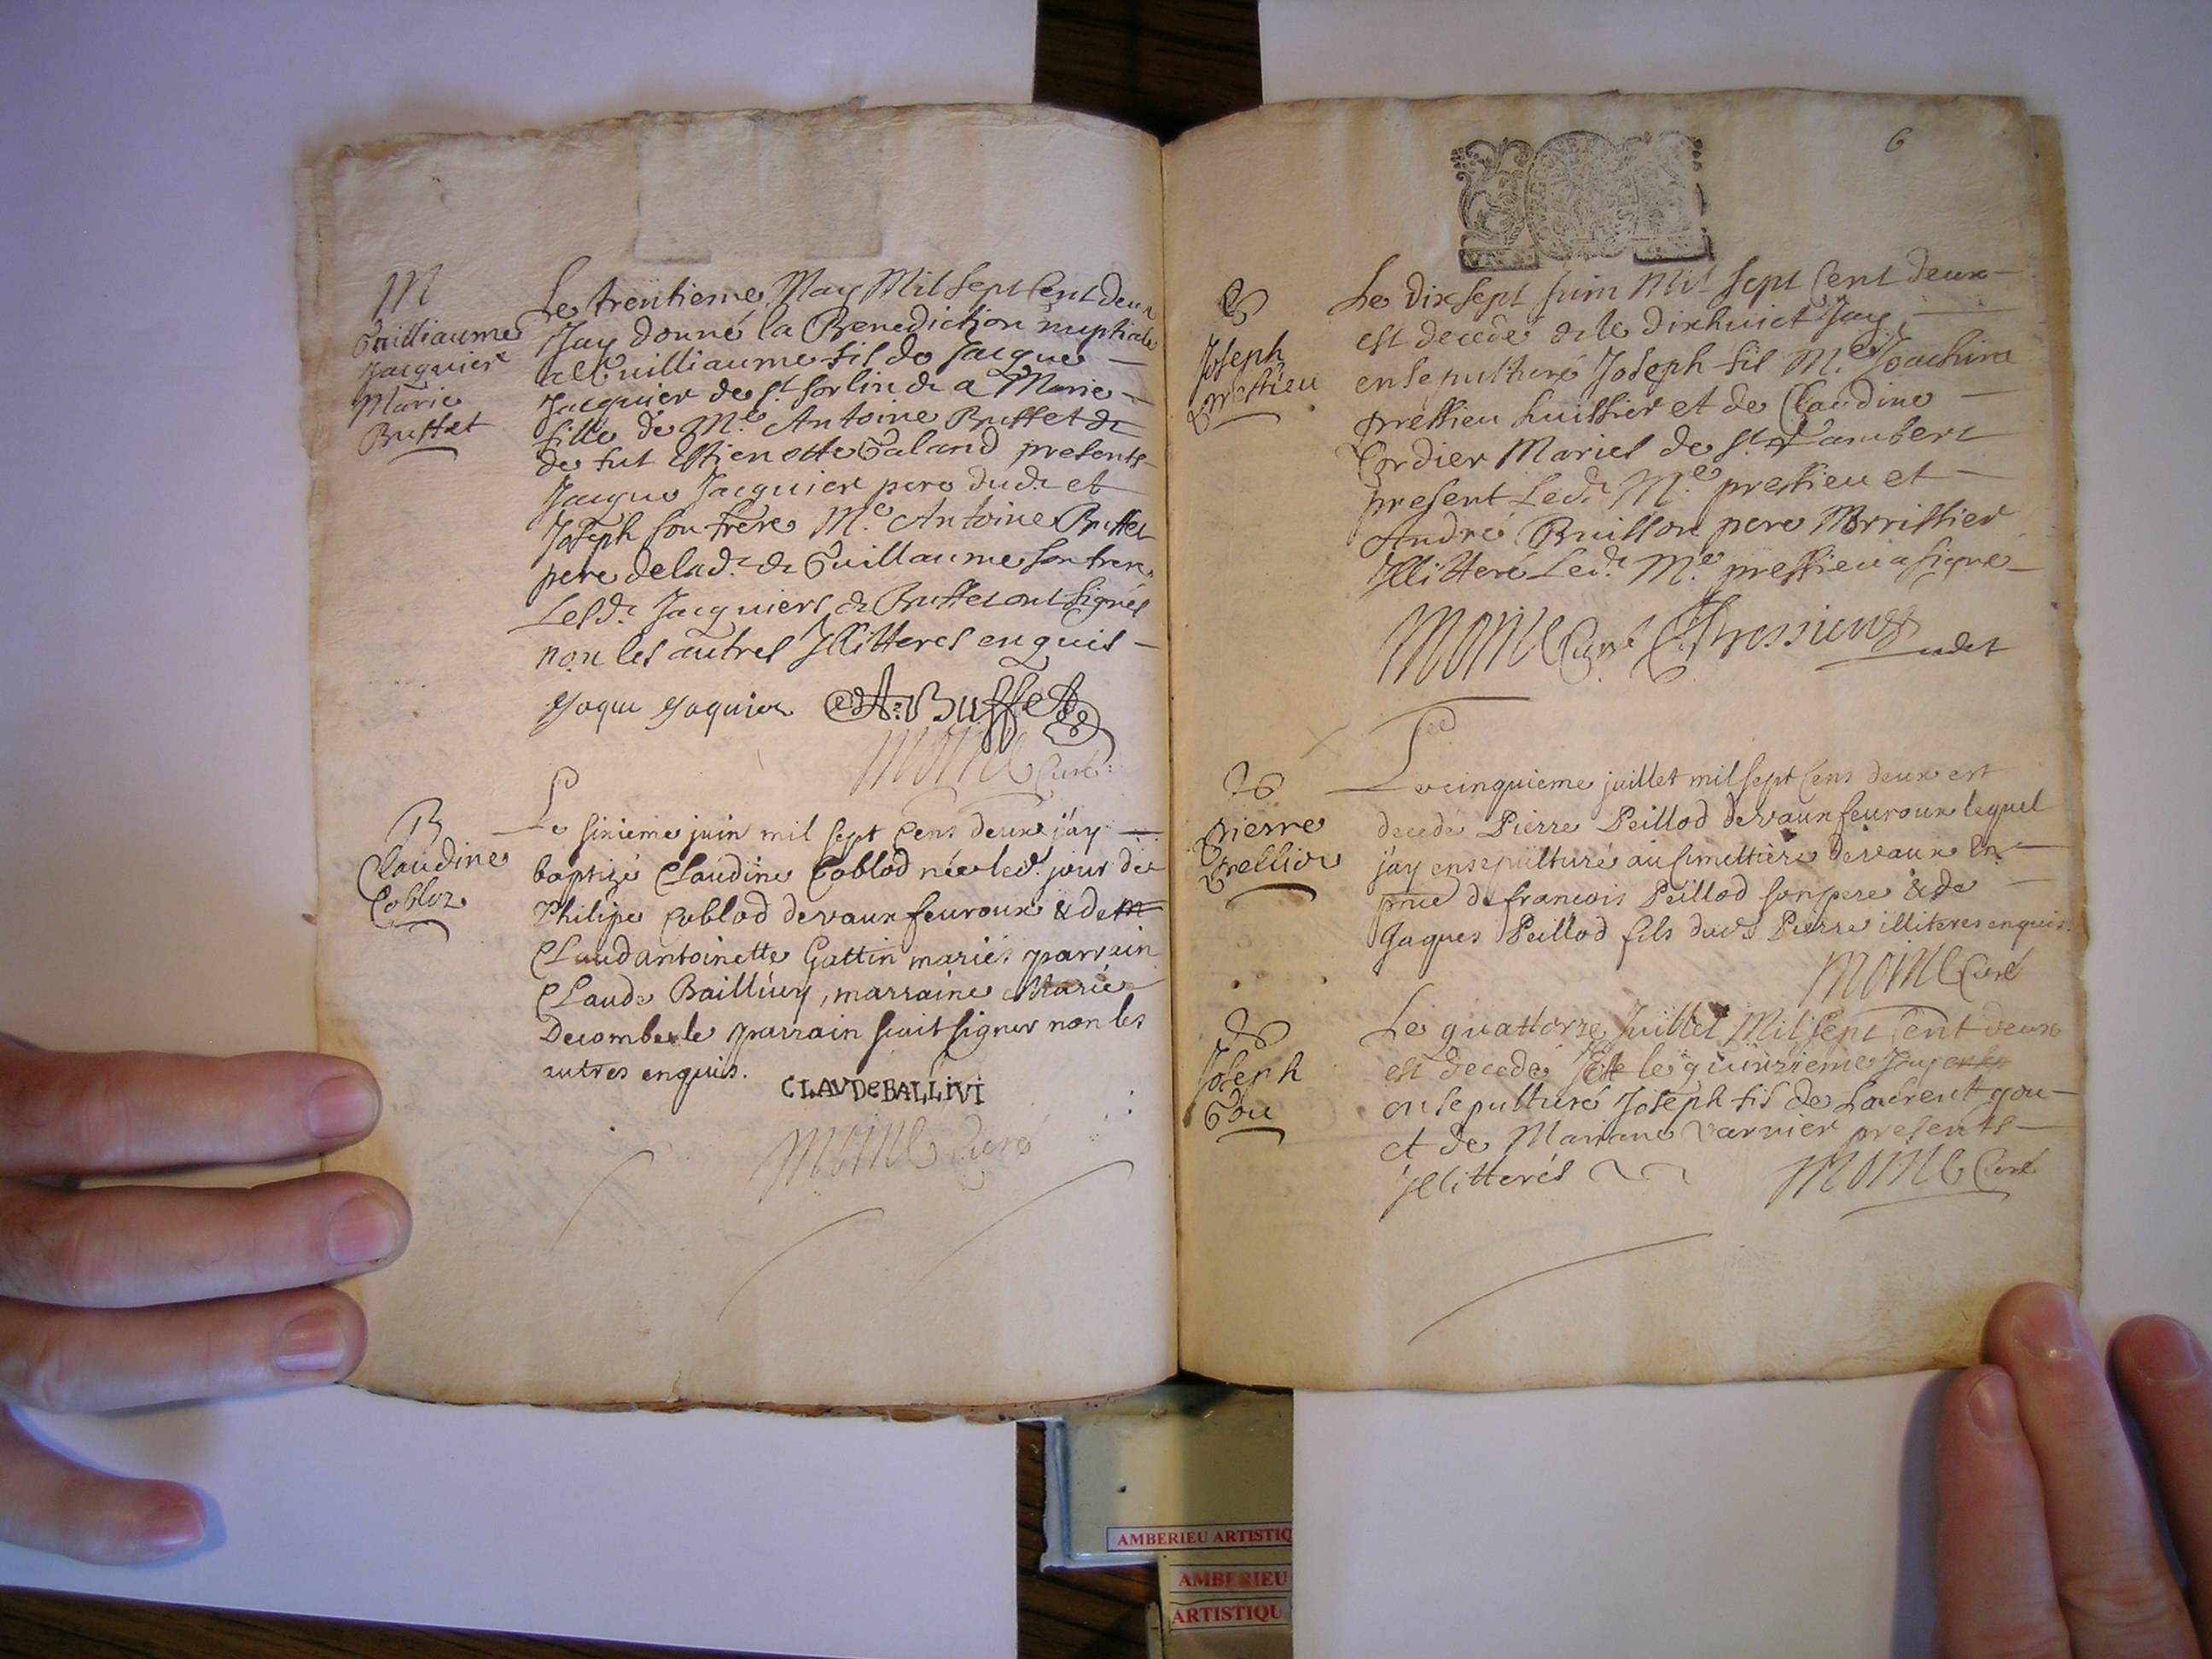 M
Guilliaume
Jacquier
Marie
Buffet
Le trentieme May Mil sept Cent deux
Jay donné la Benediction nuptiale
a Guilliaume fil de Jacque
Jacquier de st Sorlin & a Marie
fille de Me Antoine Buffet &
de fut Estienotte Galand presents
Jacque Jacquier pere dudt et
Joseph son frere Me Antoine Buffet
pere de lade & Guillaume son frere
Lesdt Jacquiers & Buffet ont signés
non les autres Illitteres enquis
Jaque Jaquier A. Buffet
Moine Curé
B
Claudine
Cobloz
Le sixieme juin mil sept Cens deux j'ay
baptizé Claudine Coblod née led. jour de
Philipe Coblod devaux feuroux & de m
Claudantoinette Gattin mariés parrain
Claude Bailliuy, marraine Marie
Decombe le parrain scait signer non les
autres enquis.
CLAVDe BALLIVI
Moine Curé
6
Joseph
pressieu
Le dix sept Juin Mil sept Cent deux
est decedé & le dixhuict Jay
ensepulturé Joseph fil Me Joachim
pressieu huissier et de Claudine
Cordier Mariés de st Rambert
present Ledt Me pressieu et
André Buisson pere Norrissier
Illitteré Ledt Me pressieu a signé
Moine Curé Pressieux
Pierre
Peillior
Le cinquieme juillet mil sept Cens deux est
decedé Pierre Peillod devaux feuroux lequel
j'ay ensepulturé au simettiere devaux En
pnce de francois Peillod son pere & de
Jaques Peillod fils dud Pierre illiteres enquis.
Moine Curé
Joseph
Gou
Le quattorze Juillet Mil sept Cent deux
est decedé Et le quinzieme Jay
ensepulturé Joseph fil de Laurent gou
et de Mariane varnier presents
illitterés
Moine Curé
AMBERIEU ARTISTIQ
AMBERIEU
ARTISTIQU